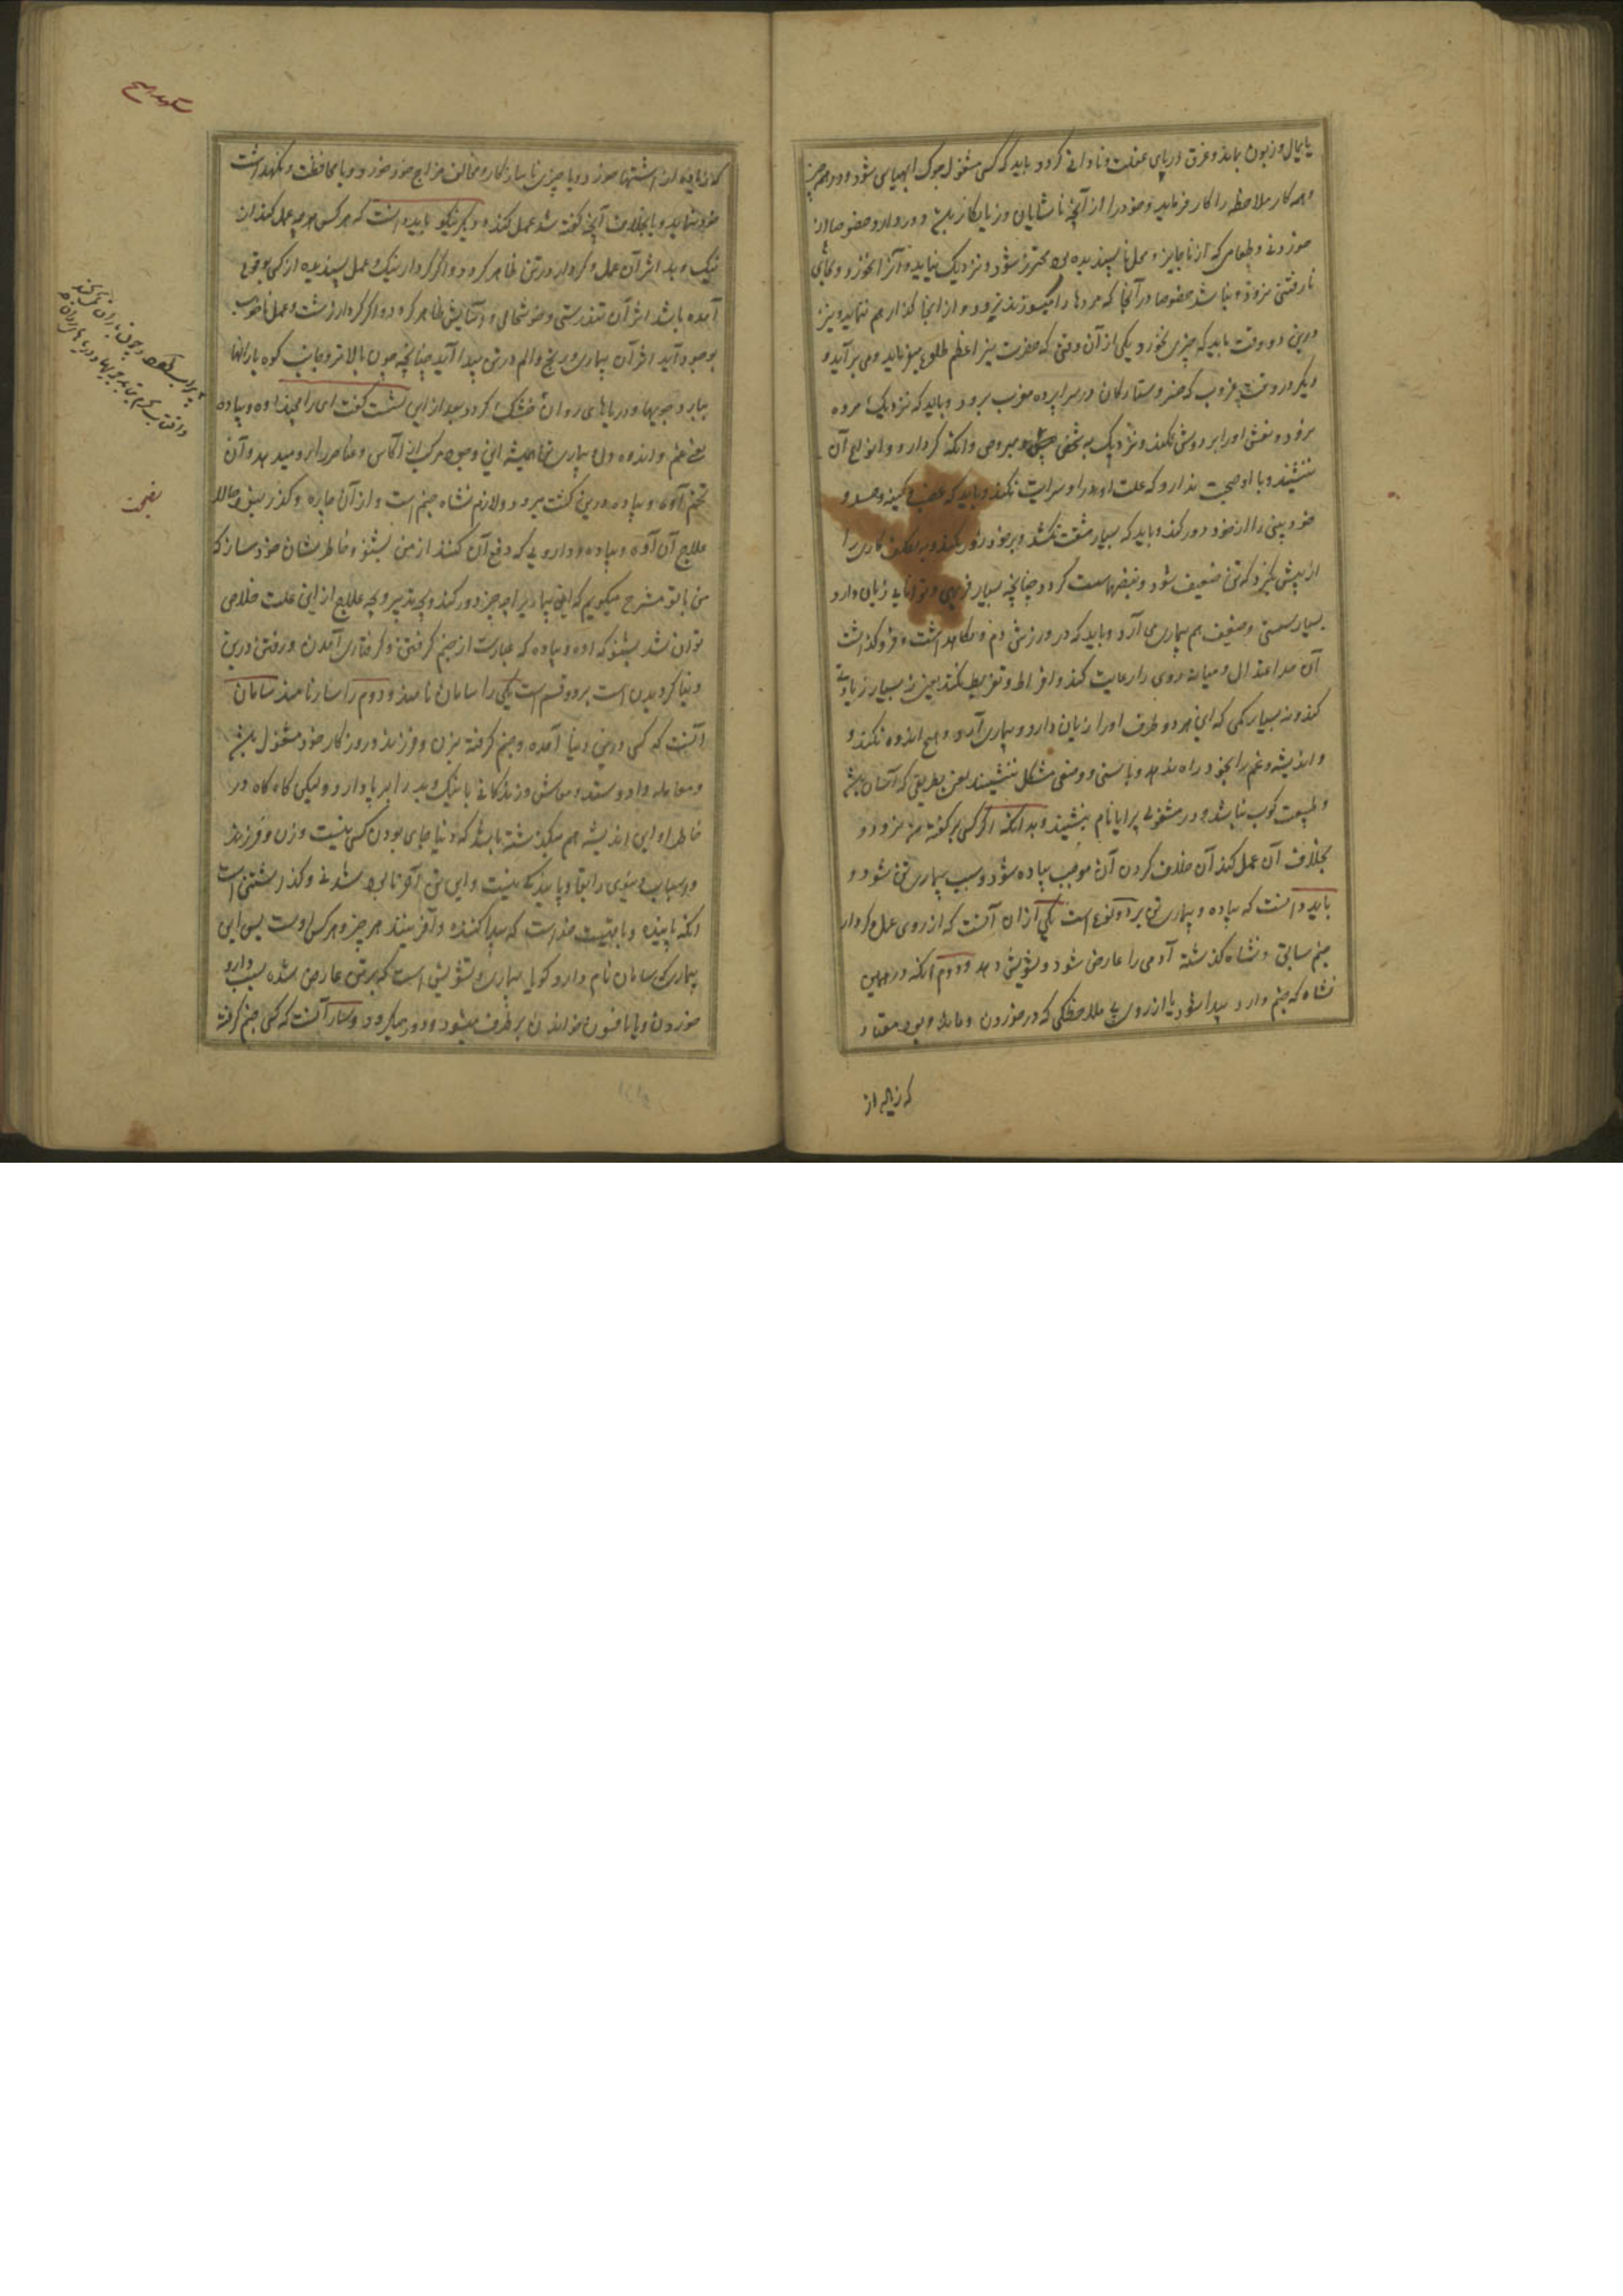 پایمال و زبون بماند و غرق دریای غفلت و نادانی گردد باید که کسی مشغول جوک ابهیاس شود و در همه چیز
و همه کار ملاحظه را کار فرماید و خود را از آنچه ناشایان و زیانکار باشد دور دارد و خصوصا از
خوردنی و طعامی که از ناجایز و محل ناپسندیده بود محترز شود و نزدیک نیاید و آنرا نخورد و بجای
نارفتنی نرود و نباشد خصوصا در آنجا که مردها را میسوزند نرود و از آنجا گذار هم ننماید و نیز
درین دو وقت باید که چیزی نخورد یکی از آن وقتی که حضرت نیر اعظم طلوع میفرماید و می برآید و
دیگر در وقت غروب که خسرو ستارگان در سراپرده مغرب برود و باید که نزدیک مرده
نرود و نعش او را بر دوش نکند و نزدیک به شخصی و مبروص و آنکه گر دارد و انواع آن
ننشیند و با او صحبت ندارد که علت او در او سرایت نکند و باید که غضب و کینه و حسد و
خودبینی را از خود دور کند و باید که بسیار مشقت نکشد و بر خود زور نکند و به تکلف کاری را
از پیش نگیرد که تن ضعیف شود و نبضها سست گردد چنانچه بسیار فربهی و توانایی زیان دارد
بسیار سستی و ضعف هم بیماری آرد و باید که در ورزش دم و نگاهداشت و فروگذاشت
آن حد اعتدال و میانه روی را رعایت کند و افراط و تفریط نکند یعنی نه بسیار زیادتی
کند و نه بسیار کمی که این هر دو طرف او را زیان دارد و بیماری آرد و هیچ اندوه نکند و
و اندیشه و غم را بخود راه ندهد و باسنی و وضعی مشکل ننشیند یعنی بطریقی که آسان باشد
و طبیعت کوب نباشد و در مشغولی پرانایام بنشیند و بدانکه اگر کسی بر گفته من نرود و
بخلاف آن عمل کند آن خلاف کردن آن موجب بیاده شود و سبب بیماری تن شود و
باید دانست که بیاده و بیماری تن بر دو گونه است یکی از آن آنست که از روی عمل و کردار
جنم سابق و نشاه گذشته آدمی را عارض شود و تشویش دهد و دوم آنکه در همین
نشاه که جنم دارد پیدا شود یا از روی بی ملاحظگی که در خوردن و ماندن و بود معتاد
که زیاده از
که زیاده از اشتها خورد و یا چیزی ناسازگار و مخالف مزاج خود خورد و یا محافظت و نگهداشت
خود ننماید و یا بخلاف آنچه گفته شد عمل کند و دیگر نیکو باید دانست که هر کس هرچه عمل کند از
نیک و بد اثر آن عمل و کردار در تن ظاهر گردد و اگر کردار نیک و عمل پسندیده از کسی بوقوع
آمده باشد اثر آن تندرستی و خوشحالی و آسایش ظاهر گردد و اگر کردار زشت و عمل ناخوب
بوجود آید اثر آن بیماری و رنج و الم در تن پیدا آید چنانچه چون بالاتر و جانب کوه بارانها
ببارد جویها و دریاهای روان خشک گردد بعد از این بسشت گفت ای رامچند آده و بیاده
یعنی غم و اندوه دل و بیماری تن همیشه این وجود مرکب را از آکاس و عناصر را رو میدهد و آن
تخم آده و بیاده درین کشت میرود و لازم نشاه جنم است و از آن چاره و گذر نیست و حالا
علاج آن آده و بیاده و داروی که دفع آن کنند از من بشنو و خاطر نشان خود ساز که
من با تو مشرح میگویم که این بیماری را چه چیز دور کند و بچه تدبیر و چه علاج از این علت خلاص
توان شد بشنو که آده و بیاده که عبارت از جنم گرفتن و گرفتاری آمدن و رفتن درین
دنیا گردیدن است بر دو قسم است یکی را سامان نامند و دوم را سار نامند سامان
آنست که کسی درین دنیا آمده و جنم گرفته بزن و فرزند و روزگار خود مشغول باشد
و معامله داد و ستد و معاش و زندگانی با نیک و بد را برپا دارد ولیکن گاه گاه در
خاطر او این اندیشه هم میگذشته باشد که دنیا جای بودن کسی نیست و زن و فرزند
و اسباب دنیوی را بقا و پایندگی نیست و این تن آخر نابود شدنی و گذراشتنی است
آنکه پاینده و باقیست خداست که پیدا کننده و آفریننده هر چیز و هر کس اوست پس این
بیماری که سامان نام دارد گویا بیماری و تشویش است که بر تن عارض شده بسبب دارو
خوردن و یا افسون خواندن برطرف میشود و دور میگردد و سار آنست که کسی جنم گرفته
نصیحت